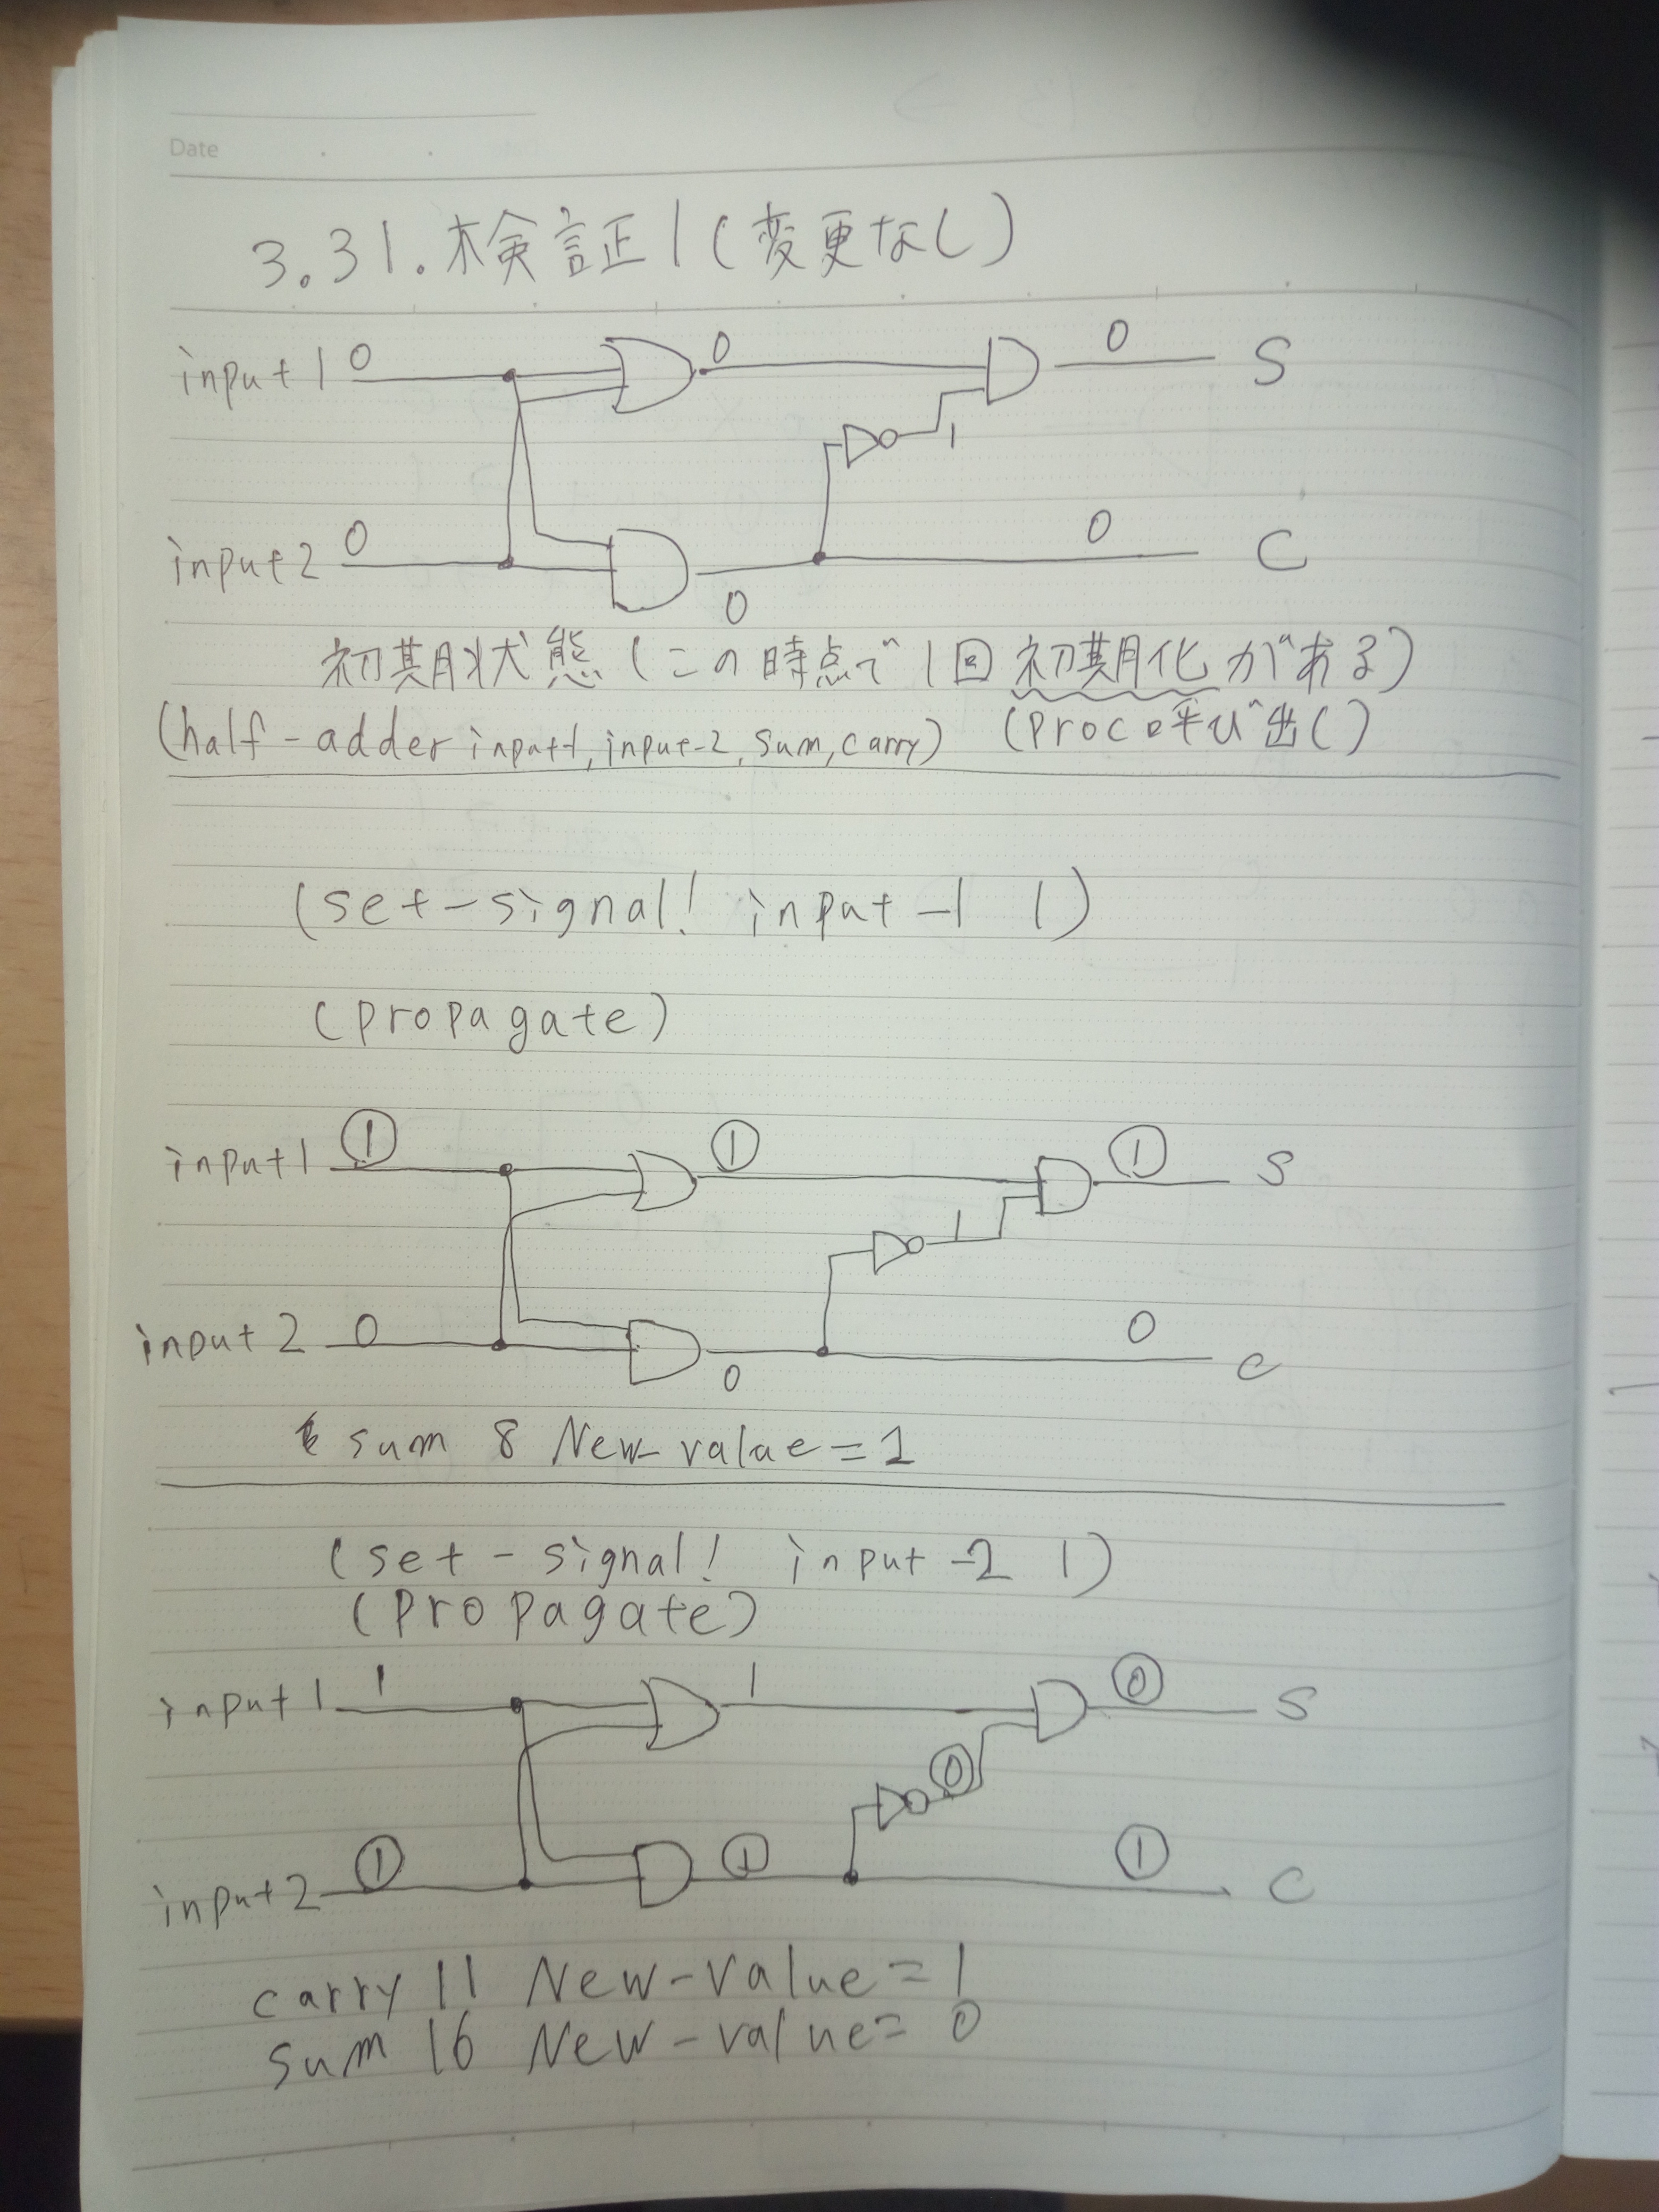 Date
3.31. 検証1(変更なし)
input1 0 0 0 S
1
input2 0 0 0 C
初期状態(この時点で1回初期化がある)
(half-adder input-1, input-2, sum, carry) (proc呼び出し)
(set-signal! input-1 1)
(propagate)
input1 ① ① ① S
1
input2 0 0 0 C
sum 8 New-value=1
(set-signal! input-2 1)
(propagate)
input1 1 1 ⓪ S
⓪
input2 ① ① ① C
carry 11 New-value=1
sum 16 New-value=0